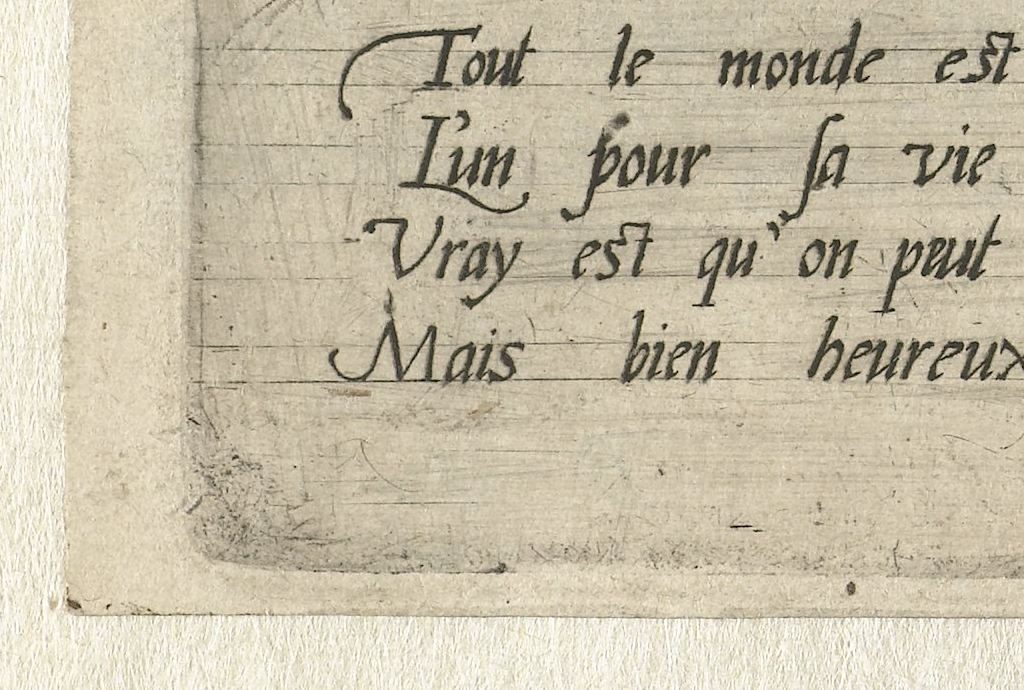 Tout le monde est
L'un pour ſa vie
Vray est qu'on peut
Mais bien heureux